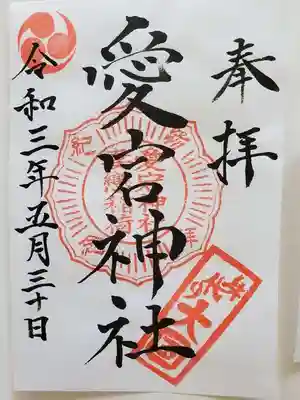 奉拝
愛宕神社
令和三年五月三十日